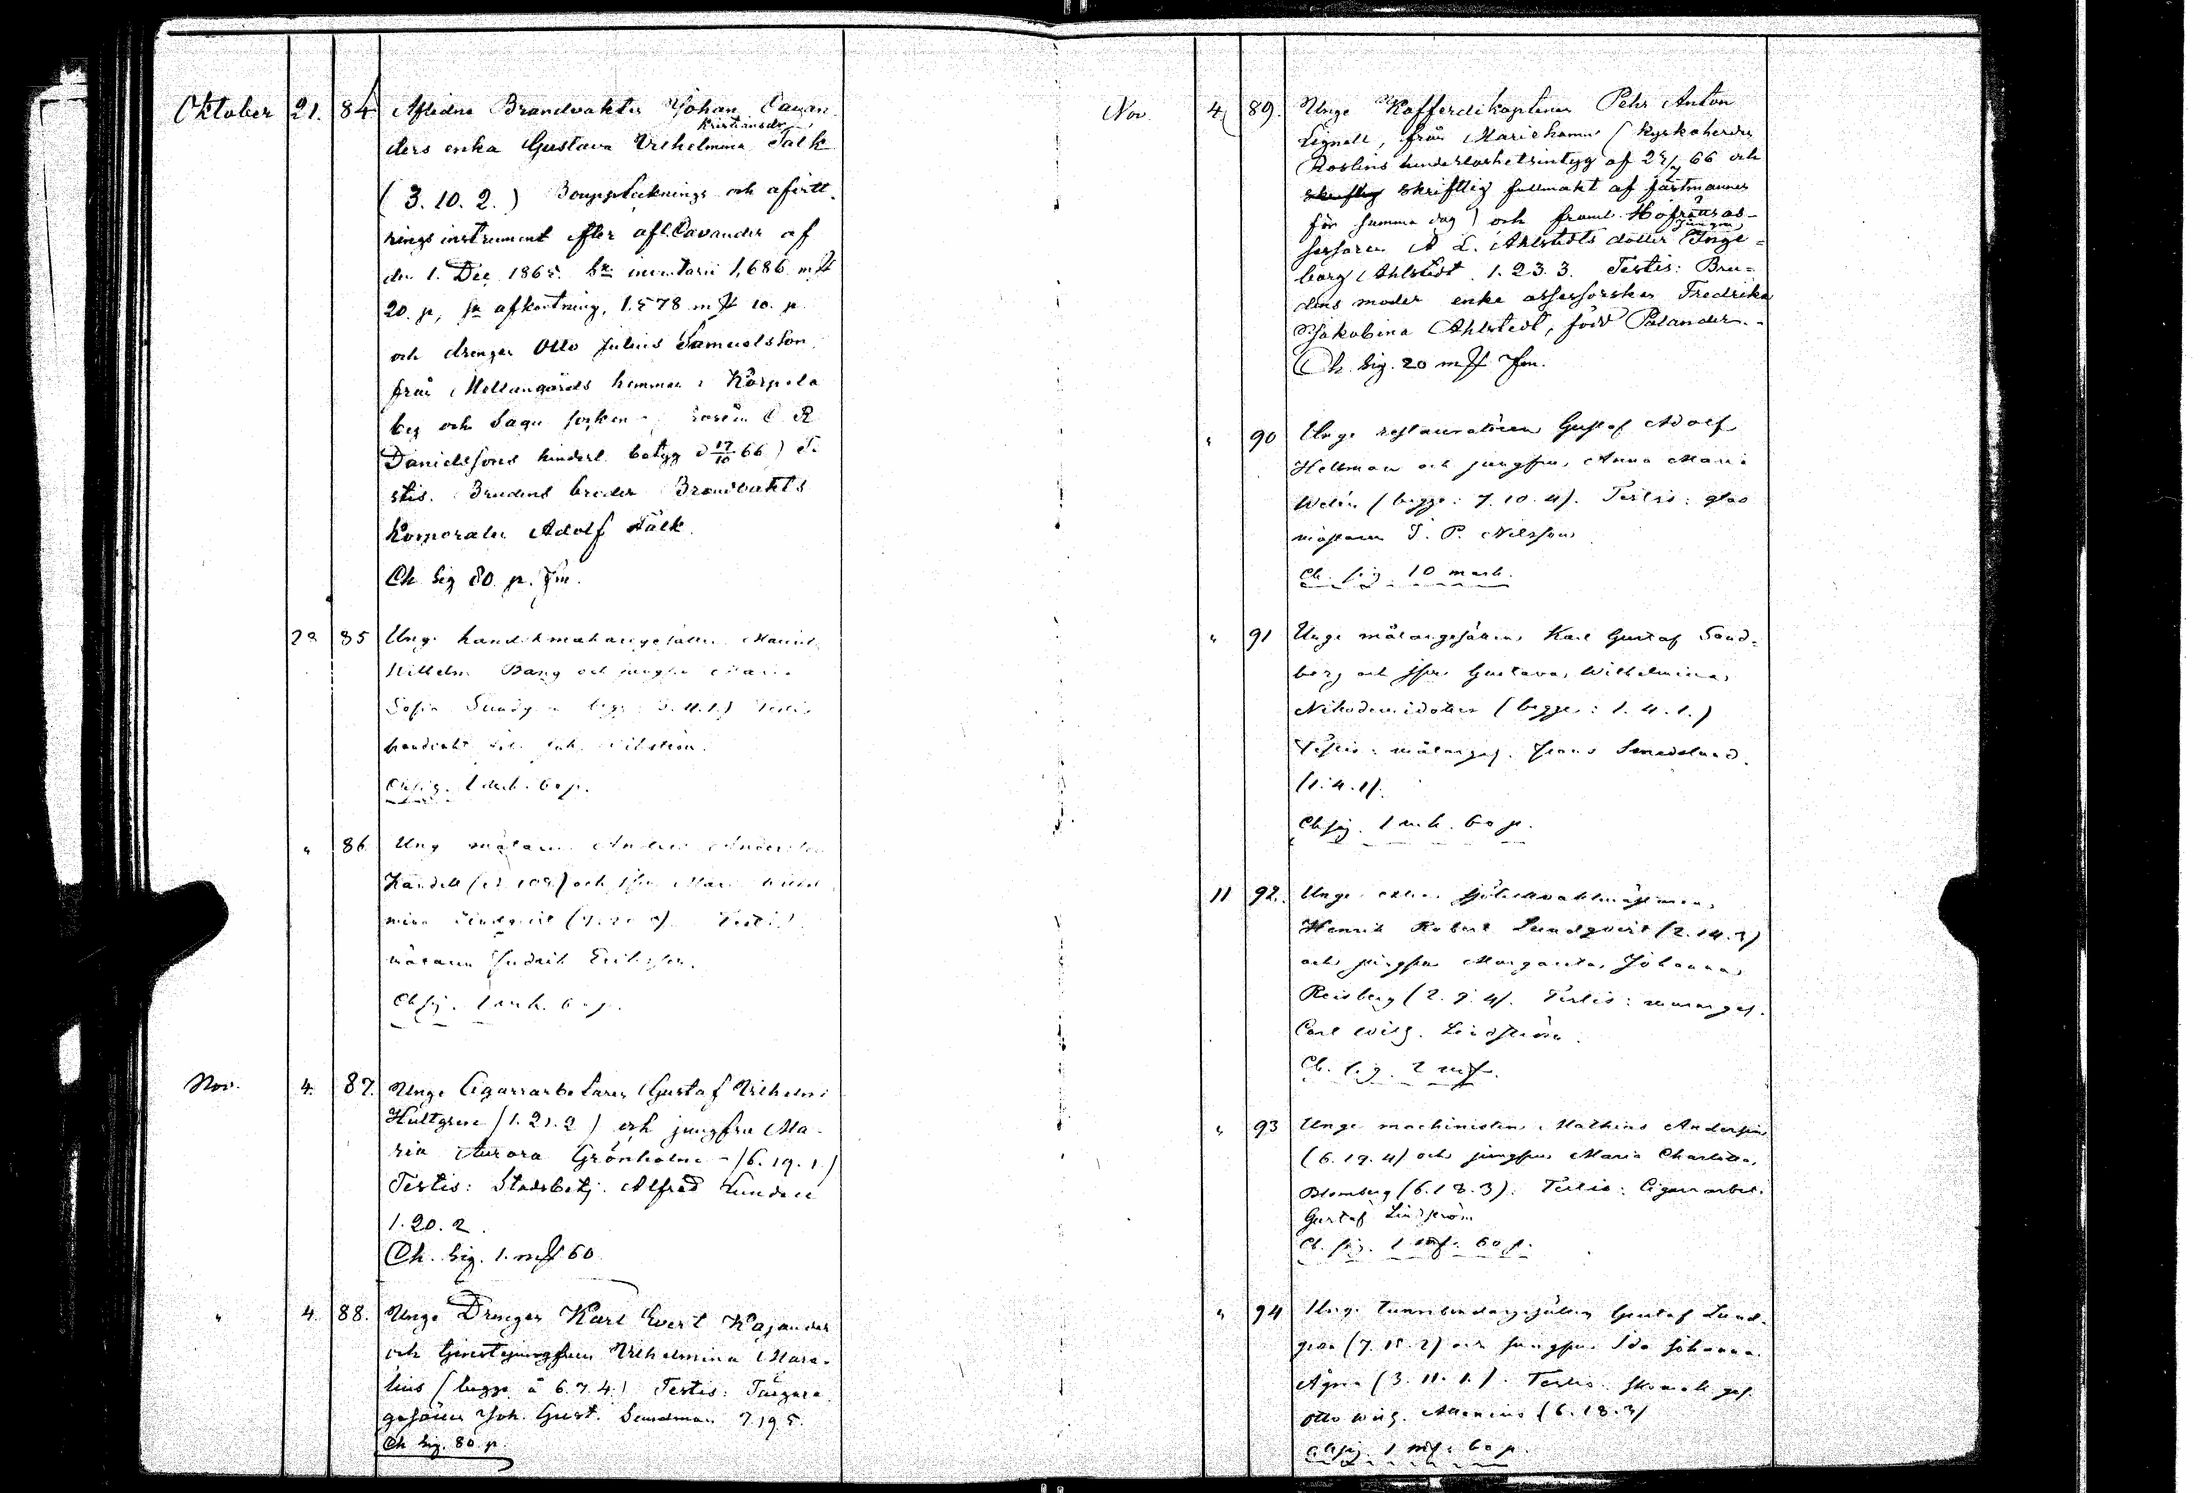 Oktober 21. 84 Aflidne Brandvakten Johan Cavan-
ders enka Gustava Vilhelmina Kristiansdr Falk
(3.10.2.) Bouppteknings och afvitt-
rings instrument efter afl. Cavander af
den 1. Dec 1865. inventarii 1,686 mk
20. p, afkortning, 1.578 mk 10. p.
och drengen Otto Julius Samuelsson
från Mellangårds hemman i Kärpela
by och Sagu socken
Danielssons hinderl. betyg d 17/10 66) Te-
stis. Brudens broder Brandvakts
Korporalen Adolf Falk.
Ch. Sig 80. p. fin.
28 85 Unge handskmakaregesällen
Wilhelm Bang och jungfru Maria
Sofia
Ch. sig. 1 mk. 60 p.
" 86 Unge målaren Anders
och jfru Maria
mina Lindqvist Testis
målaren Fredrik Eriksson.
Ch. sig. 1 mk. 60 p.
Nov. 4. 87. Unge Cigarrarbetaren Gustaf Vilhelm
Hultgren (1.21.2) och jungfru Ma-
ria Aurora Grönholm - (6.19.1)
Testis: Stadsbetj. Alfred Lundell
1.20.2.
Ch. Sig. 1. mk 60
" 4. 88. Unge Drengen Karl Evert Kajander
och tjenstejungfrun Vilhelmina Mara-
lius (begge å 6.7.4.) Testis:
gesällen Joh. Gust. Sundman 7.19.5.
Ch Sig. 80. p.
Nov. 4 89. Unge Kofferdikaptenen Pehr Anton
Lignell, från Mariehamn (Kyrkoherden
Roslins hinderlöshetsintyg af 66 och
skriftlig skriftlig fullmakt af fästmannen
för samma dag) och framl. Hofrättsas-
sessoren A L. Ahlstedts dotter Jungfru Inge-
borg Ahlstedt 1.23.3. Testis: Bru-
dens moder enke assessorskan Fredrika
Jakobina Ahlstedt, född Polander.-
Ch. Sig. 20 mk fin.
" 90 Unge restauratören Gustaf Adolf
Hellman och jungfru Anna Maria
Welin (begge: 7.10.4). Testis: glas
mästaren J. P. Nilsson
Ch. sig. 10 mark.
" 91 Unge målargesällen Karl Gustaf Sand-
berg och jfru Gustava Wilhelmina
Nikodemidotter (begge: 1.4.1.)
Testis: målarges. Frans Smedslund.
(1.4.1).
Ch sig. 1 mk. 60 p.
11 92. Unge extra
Henrik Robert Lundqvist (2.14.3)
och jungfru Margareta Johanna
Reisberg (2.9.4). Testis: murar ges.
Carl Wilh. Lindström.
Ch. sig. 2 mk.
" 93 Unge machinisten Mathias Andersin
(6.19.4) och jungfru Maria Charlotta
Blomberg (6.18.3). Testis: Cigarrarbet.
Gustaf Lindström
Ch. sig. 1 mk. 60 p.
" 94 Unge tunnbindargesällen Gustaf Lund-
gren (7.15.2) och jungfru Ida Johanna
Ågren (3.11.1.). Testis: skomak. ges.
Otto Wilh. Allenius (6.18.3)
Ch sig. 1 mk. 60 p.